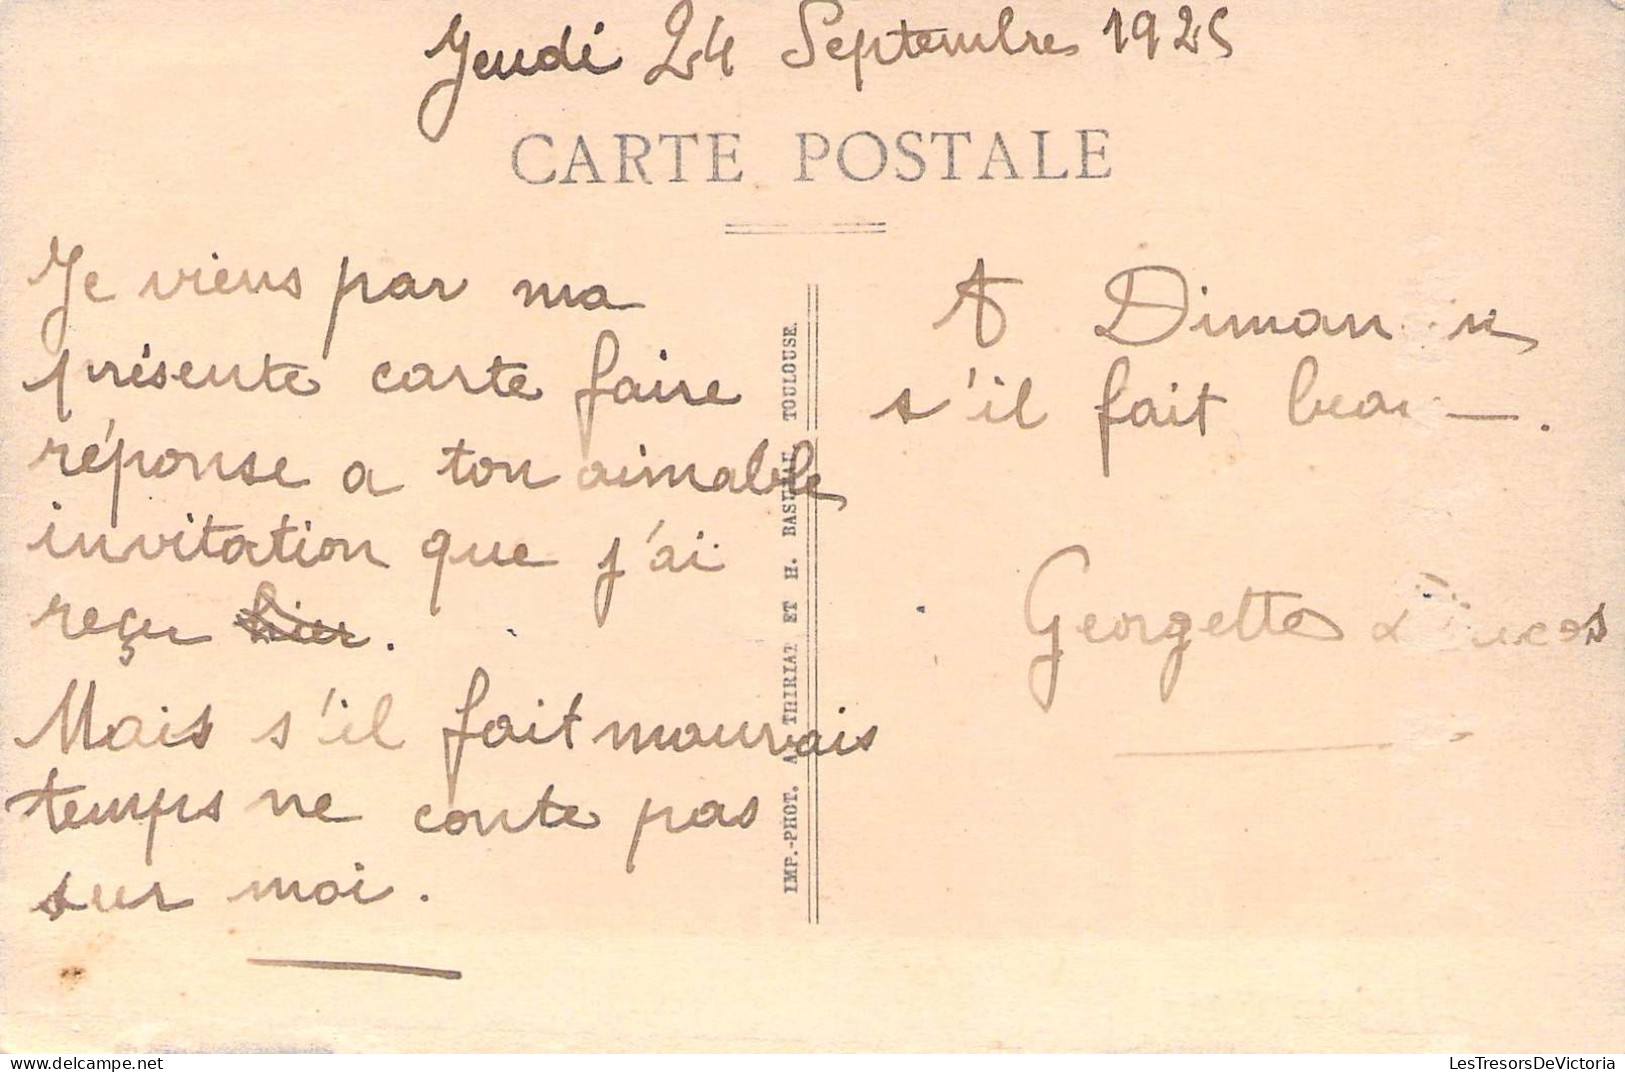 Jeudi 24 Septembre 1925
CARTE POSTALE
Je viens par ma
présente carte faire
réponse a ton aimable
invitation que j'ai
reçu hier.
Mais s'il fait mauvais
temps ne conte pas
sur moi.
IMP.-PHOT. A. THIRIAT ET H. BASUYAU, TOULOUSE.
A
s'il fait
Georgette
LesTresorsDeVictoria